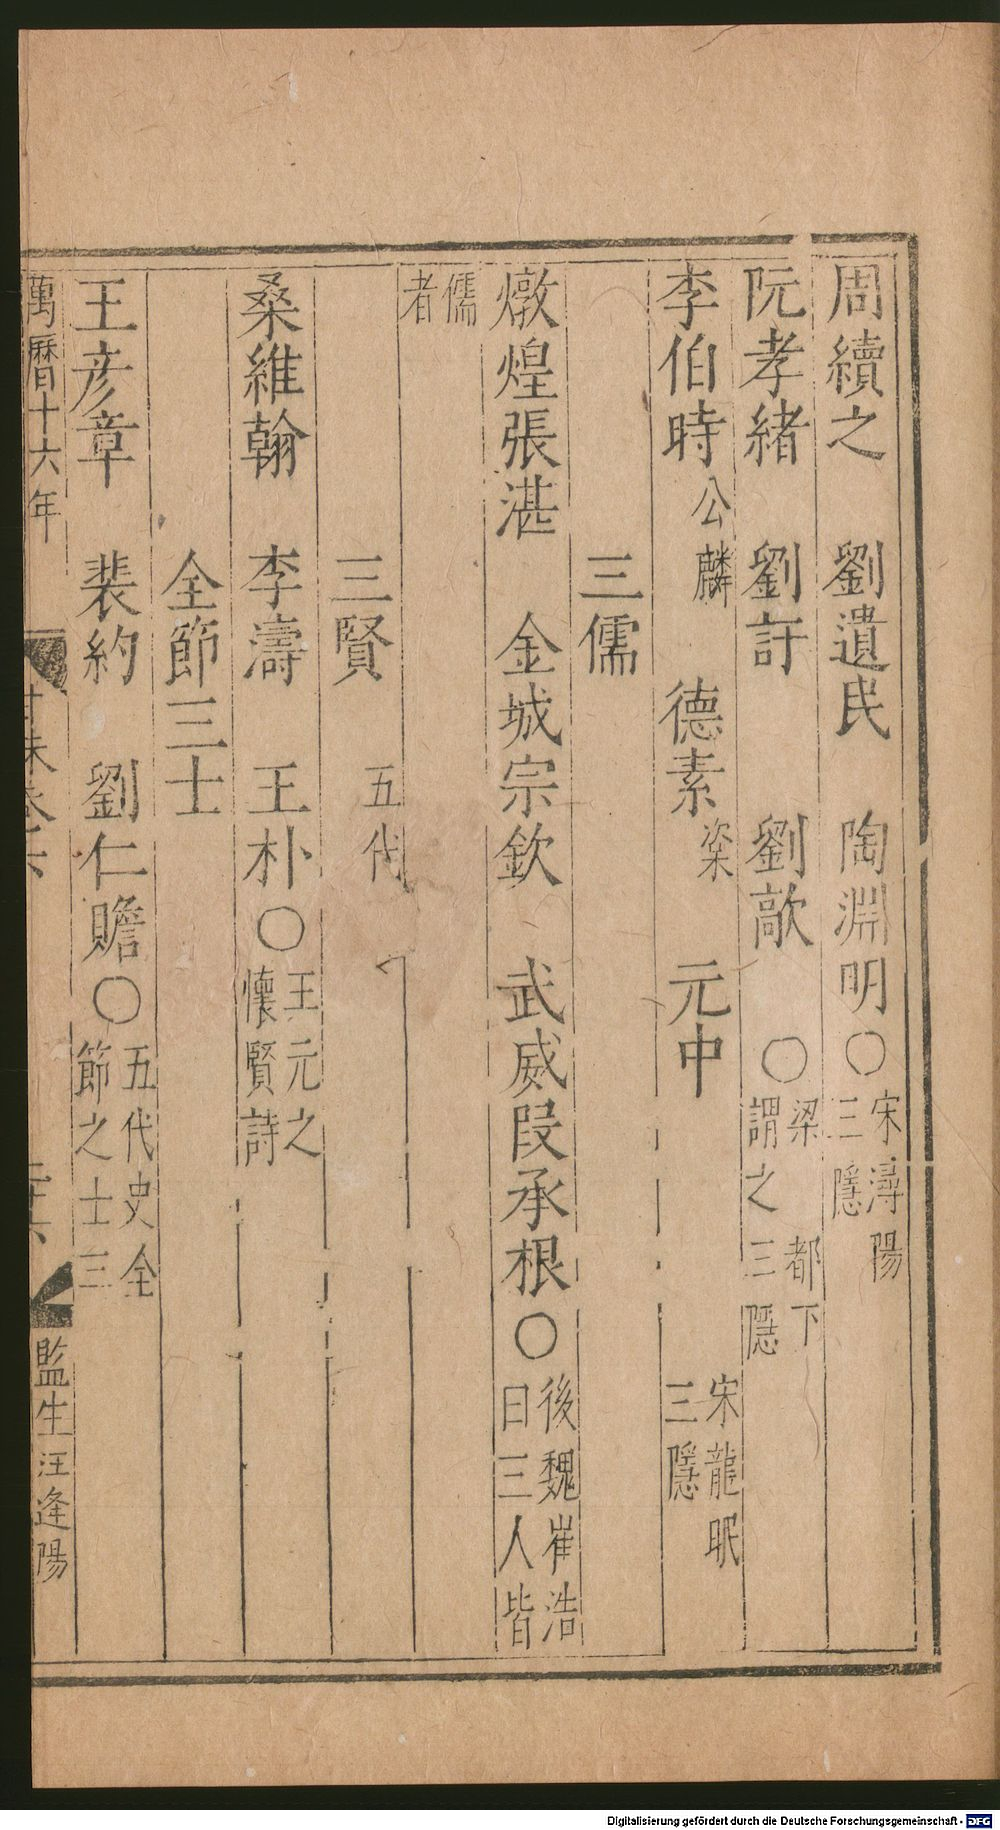 周續之 劉遺民 陶淵明○宋潯陽三隱
阮孝緒 劉訏 劉歊 ○梁 都下謂之三隱
李伯時公麟 德素楶 元中 宋龍眠三隱
三儒
燉煌張湛 金城宗欽 武威段承根○後魏崔浩曰三人皆
儒者
三賢 五代
桑維翰 李濤 王朴○王元之懷賢詩
全節三士
王彦章 裴約 劉仁贍○五代史全節之士三
萬曆十六年 監生汪逢陽
Digitalisierung gefördert durch die Deutsche Forschungsgemeinschaft - DFG